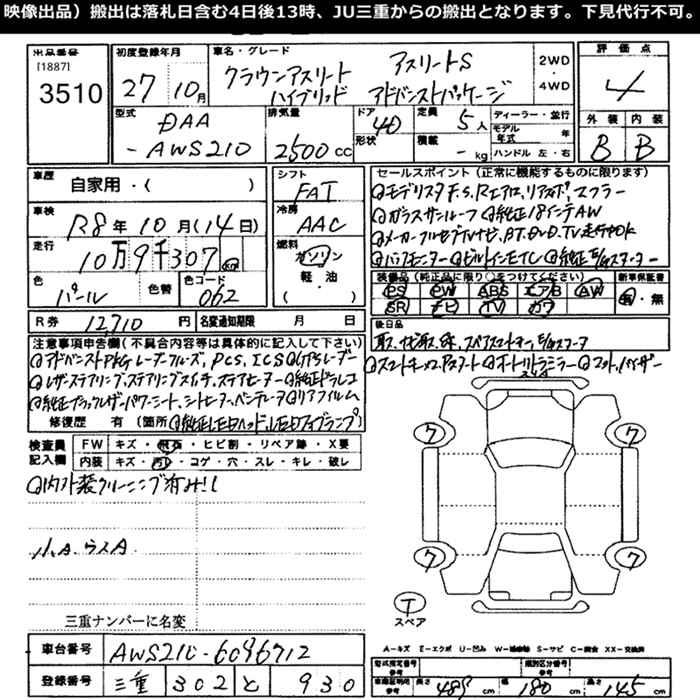 映像出品）搬出は落札日含む4日後13時、JU三重からの搬出となります。下見代行不可。
出品番号 初度登録年月 車名・グレード 評価点
[1887]
3510 27 10月 クラウンアスリート アスリートS 2WD・4WD 4
ハイブリッド アドバンストパッケージ
型式 排気量 ドア形状 定員 ディーラー・並行 外装 内装
DAA 4D 5人 モデル年式 年
-AWS210 2500cc 積載 -kg ハンドル 左・右 B B
車歴 自家用・( ) シフト FAT セールスポイント（正常に機能するものに限ります）
◎モデリスタF.S.Rエアロ,リアスポ,マフラー
車検 R8年10月(14日) 冷房 AAC ◎ガラスサンルーフ ◎純正18インチAW
走行 10万9千307km 燃料 ガソリン ◎メーカーフルセグTVナビ,BT,DVD,TV走行中OK
軽・油 ◎バックモニター ◎ビルトインETC ◎純正E/gスターター
( )
色 パール 色替 色コード 062 装備品（純正品に限り○をつけてください） 新車保証書
PS PW ABS エアB AW 有・無
SR ナビ TV カワ
R券 12,710円 名変通知期限 月 日 後日品
注意事項申告欄（不具合内容等は具体的に記入して下さい）
◎アドバンストPKG レーダークルーズ,PCS,ICS
◎レザーステアリング,ステアリングスイッチ,ステアヒーター ◎純正ドラレコ
◎純正ブラックレザーパワーシート,シートヒーター,ベンチレータ ◎リアフィルム
修復歴 有（箇所 ◎純正LEDヘッド,LEDフォグランプ)
◎オートリトラミラー ◎マット,バイザー
検査員記入欄 FW キズ・飛石・ヒビ割・リペア跡・X要
内装 キズ・汚れ・コゲ・穴・スレ・キレ・破レ
◎内外装クリーニング済み!!
小A.ウスA
ワ ワ
ワ ワ
T
スペア
三重ナンバーに名変
A－キズ E－エクボ U－凹み W－補修跡 S－サビ C－腐食 XX－交換済
車台番号 AWS210-6096712 型式指定番号 類別区分番号
参考 参考
登録番号 三重 302 と 930 車庫証明用参考 長さ 489cm 幅 180cm 高さ 145cm